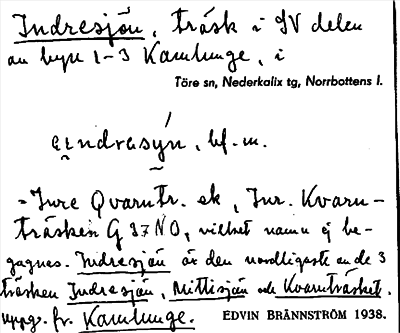 Indresjön, träsk i SV delen
av byn 1-3 Kamlunge, i
Töre sn, Nederkalix tg, Norrbottens l.
bf. m.
= Inre Qvarntr. ek, Inr. Kvarn-
träsken G 37 NO, vilket namn ej be-
gagnas. Indresjön är den nordligaste av de 3
träsken Indresjön, Mittisjön och Kvarnträsket.
uppg. fr. Kamlunge. EDVIN BRÄNNSTRÖM 1938.